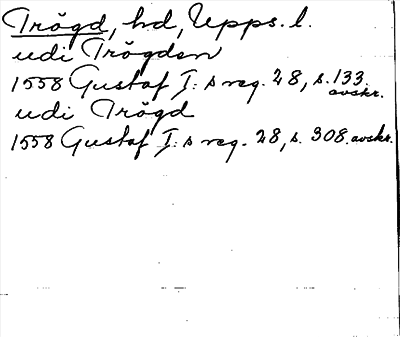 Trögd, hd, Upps. l.
udi Trögden
1558 Gustaf I:s reg. 28, s. 133.
avskr.
udi Trögd
1558 Gustaf I:s reg. 28, s. 308. avskr.